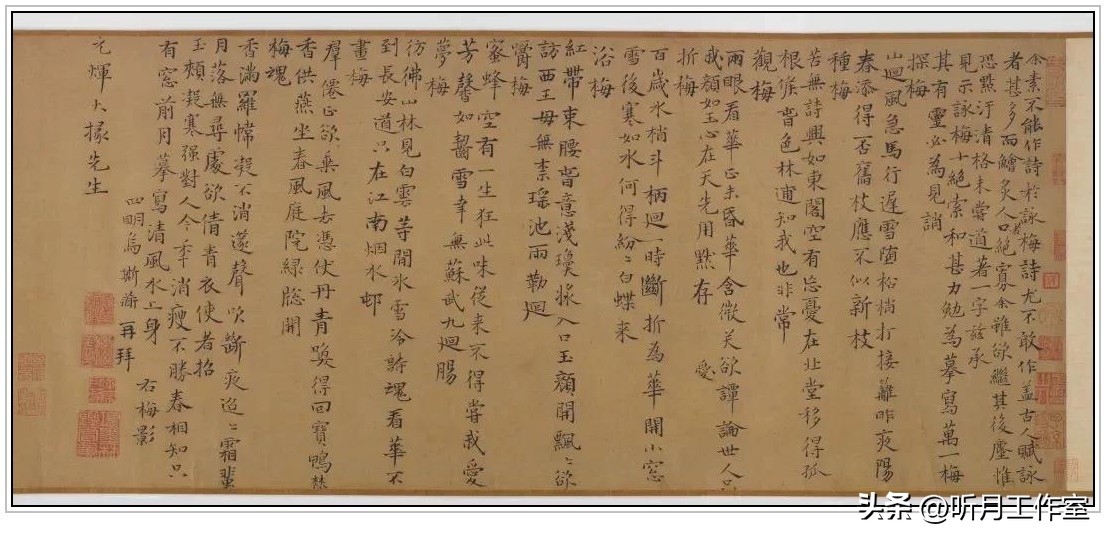 余素不能作詩於詠梅詩尤不敢作蓋古人賦詠
者甚多而鱠炙人口者絕寡余雖欲繼其後塵惟
恐點汙清格未嘗道著一字茲承
見示詠梅十絕索和甚力勉為摹寫萬一梅
其有靈必為見誚
探梅
山迴風急馬行遲雪墮松梢打接䍦昨夜陽
春添得否舊枝應不似新枝
種梅
苦無詩興如東閣空有忘憂在北堂移得孤
根依皆色林逋知我也非常
觀梅
兩眼看華正未昏華含微笑欲譚論世人只
我顏如玉心在天先用點存 愛
折梅
百歲冰梢斗柄迴一時斷折為華開小窓
雪後寒如水何得紛〻白蝶来
浴梅
紅帶東腰皆意淺瓊漿入口玉顏開飄〻欲
訪西王母無柰瑤池雨勒迴
嚼梅
蜜蜂空有一生狂此味從来不得嘗我愛
芳馨如齧雪幸無蘇武九迴腸
夢梅
彷彿山林見白雲等閒氷雪冷詩魂看華不
到長安道只在江南烟水邨
畫梅
羣僊正欲乗風去憑仗丹青喚得回寶鴨焚
香供燕坐春風庭院緑牎開
梅魂
香滿羅幃凝不消邃聲吹斷夜迢〻霜蜚
月落無尋處欲倩青衣使者招
玉頰凝寒强對人今年消瘦不勝春相知只
有窓前月摹寫清風水上身
右梅影
四明烏斯道再拜
元煇大掾先生
头条 @听月工作室